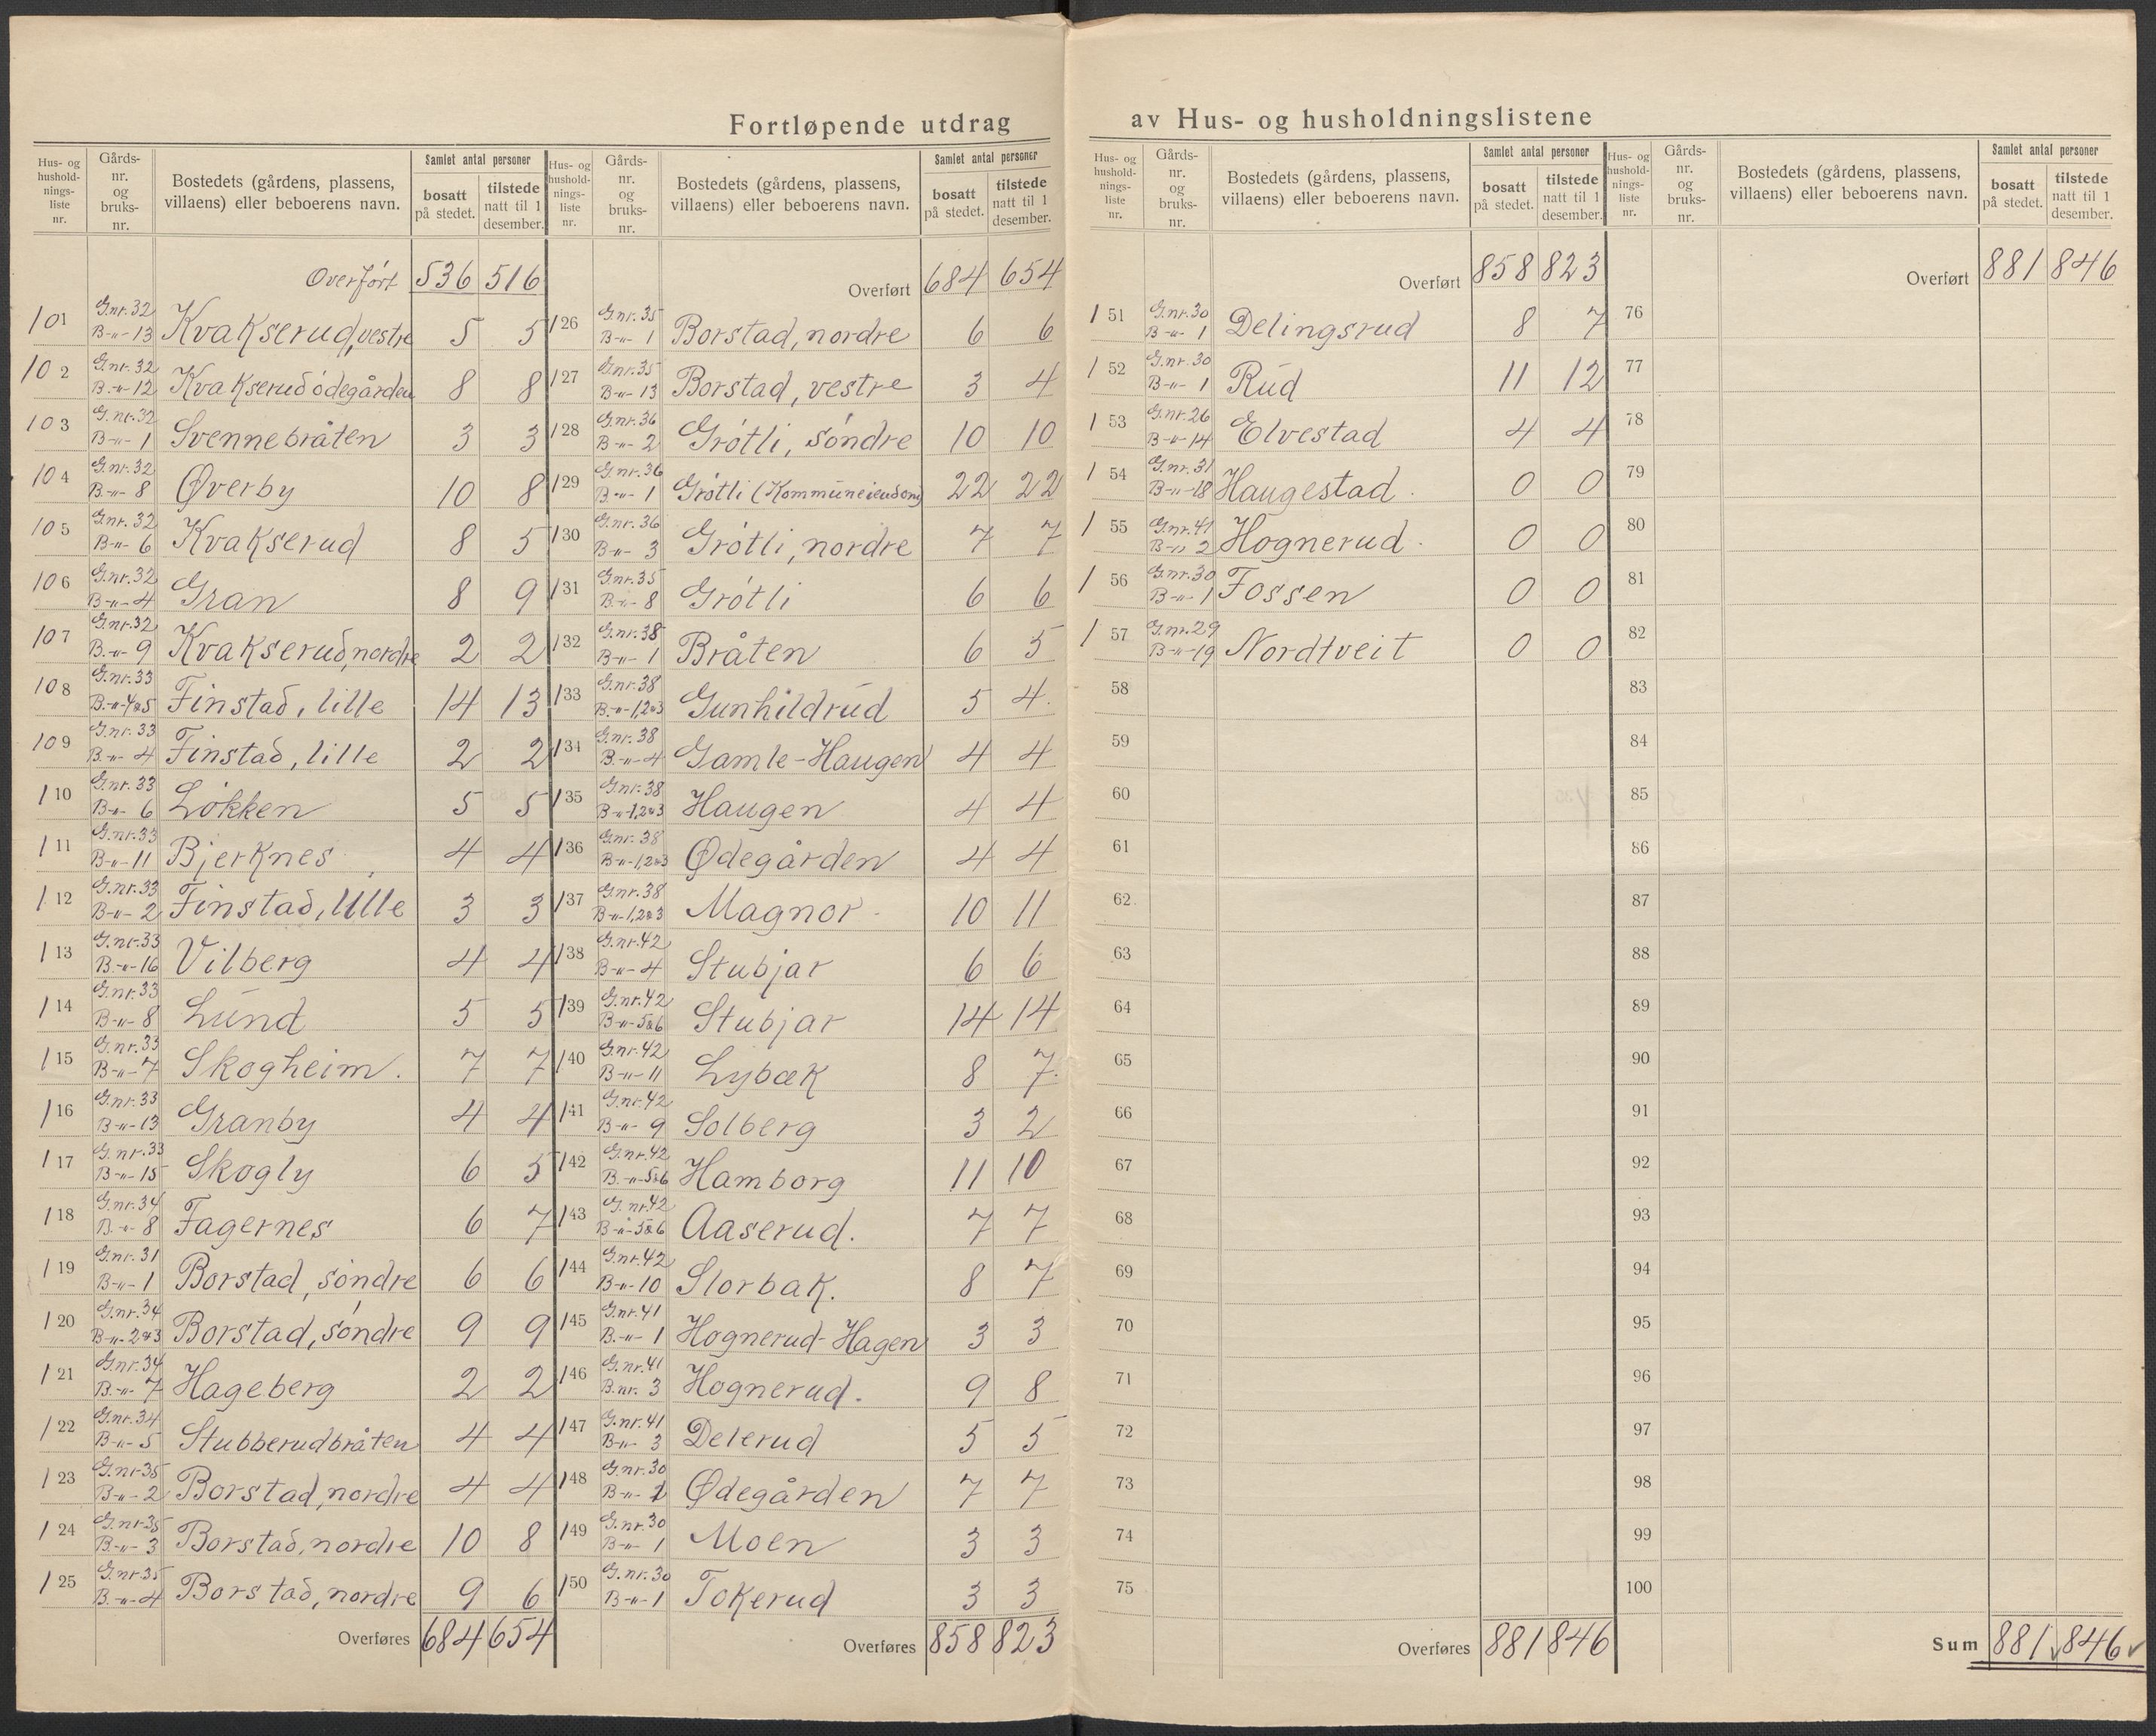 Fortløpende utdrag av Hus- og husholdningslistene
Hus- og hushold-nings-liste nr. Gårds-nr. og bruks-nr. Bostedets (gårdens, plassens, villaens) eller beboerens navn. Samlet antal personer bosatt på stedet. tilstede natt til 1 desember.
Overført 536 516
101 G.nr. 32 B-"- 13 Kvakserud, vestre 5 5
102 G.nr. 32 B-"- 12 Kvakserudödegården 8 8
103 G.nr. 32 B-"- 1 Svennebråten 3 3
104 G.nr. 32 B-"- 8 Øverby 10 8
105 G.nr. 32 B-"- 6 Kvakserud 8 5
106 G.nr. 32 B-"- 4 Gran 8 9
107 G.nr. 32 B-"- 9 Kvakserud, nordre 2 2
108 G.nr. 33 B-"- 4&5 Finstad, lille 14 13
109 G.nr. 33 B-"- 4 Finstad, lille 2 2
110 G.nr. 33 B-"- 6 Lökken 5 5
111 G.nr. 33 B-"- 11 Bjerknes 4 4
112 G.nr. 33 B-"- 2 Finstad, lille 3 3
113 G.nr. 33 B-"- 16 Vilberg 4 4
114 G.nr. 33 B-"- 8 Lund 5 5
115 G.nr. 33 B-"- 7 Skogheim. 7 7
116 G.nr. 33 B-"- 13 Granby 4 4
117 G.nr. 33 B-"- 15 Skogly 6 5
118 G.nr. 34 B-"- 8 Fagernes 6 7
119 G.nr. 31 B-"- 1 Borstad, söndre 6 6
120 G.nr. 34 B-"- 2&3 Borstad, söndre 9 9
121 G.nr. 34 B-"- 7 Hageberg 2 2
122 G.nr. 34 B-"- 5 Stubberudbråten 4 4
123 G.nr. 35 B-"- 2 Borstad, nordre 4 4
124 G.nr. 35 B-"- 3 Borstad, nordre 10 8
125 G.nr. 35 B-"- 4 Borstad, nordre 9 6
Overføres 684 654
Hus- og hushold-nings-liste nr. Gårds-nr. og bruks-nr. Bostedets (gårdens, plassens, villaens) eller beboerens navn. Samlet antal personer bosatt på stedet. tilstede natt til 1 desember.
Overført 684 654
126 G.nr. 35 B-"- 1 Borstad, nordre 6 6
127 G.nr. 35 B-"- 13 Borstad, vestre 3 4
128 G.nr. 36 B-"- 2 Grötli, söndre 10 10
129 G.nr. 36 B-"- 1 Grötli (Kommuneiendom) 22 22
130 G.nr. 36 B-"- 3 Grötli, nordre 7 7
131 G.nr. 35 B-"- 8 Grötli 6 6
132 G.nr. 38 B-"- 1 Bråten 6 5
133 G.nr. 38 B-"- 1,2&3 Gunhildrud 5 4
134 G.nr. 38 B-"- 4 Gamle-Haugen 4 4
135 G.nr. 38 B-"- 1,2&3 Haugen 4 4
136 G.nr. 38 B-"- 1,2&3 Ødegården 4 4
137 G.nr. 38 B-"- 1,2&3 Magnor 10 11
138 G.nr. 42 B-"- 4 Stubjar 6 6
139 G.nr. 42 B-"- 5&6 Stubjar 14 14
140 G.nr. 42 B-"- 11 Lybæk 8 7
141 G.nr. 42 B-"- 9 Solberg 3 2
142 G.nr. 42 B-"- 5&6 Hamborg 11 10
143 G.nr. 42 B-"- 5&6 Aaserud. 7 7
144 G.nr. 42 B-"- 10 Slorbak. 8 7
145 G.nr. 41 B-"- 1 Hognerud-Hagen 3 3
146 G.nr. 41 B.nr. 3 Hognerud. 9 8
147 G.nr. 41 B-"- 3 Delerud 5 5
148 G.nr. 30 B-"- 1 Ødegården 7 7
149 G.nr. 30 B-"- 1 Moen 3 3
150 G.nr. 30 B-"- 1 Tokerud 3 3
Overføres 858 823
Hus- og hushold-nings-liste nr. Gårds-nr. og bruks-nr. Bostedets (gårdens, plassens, villaens) eller beboerens navn. Samlet antal personer bosatt på stedet. tilstede natt til 1 desember.
Overført 858 823
151 G.nr. 30 B-"- 1 Delingsrud 8 7
152 G.nr. 30 B-"- 1 Rud 11 12
153 G.nr. 26 B-"- 14 Elvestad 4 4
154 G.nr. 31 B-"- 18 Haugestad. 0 0
155 G.nr. 41 B-"- 2 Hognerud. 0 0
156 G.nr. 30 B-"- 1 Fossen 0 0
157 G.nr. 29 B-"- 19 Nordtveit 0 0
58
59
60
61
62
63
64
65
66
67
68
69
70
71
72
73
74
75
Overføres 881 846
Hus- og hushold-nings-liste nr. Gårds-nr. og bruks-nr. Bostedets (gårdens, plassens, villaens) eller beboerens navn. Samlet antal personer bosatt på stedet. tilstede natt til 1 desember.
Overført 881 846
76
77
78
79
80
81
82
83
84
85
86
87
88
89
90
91
92
93
94
95
96
97
98
99
100
Sum 881 846